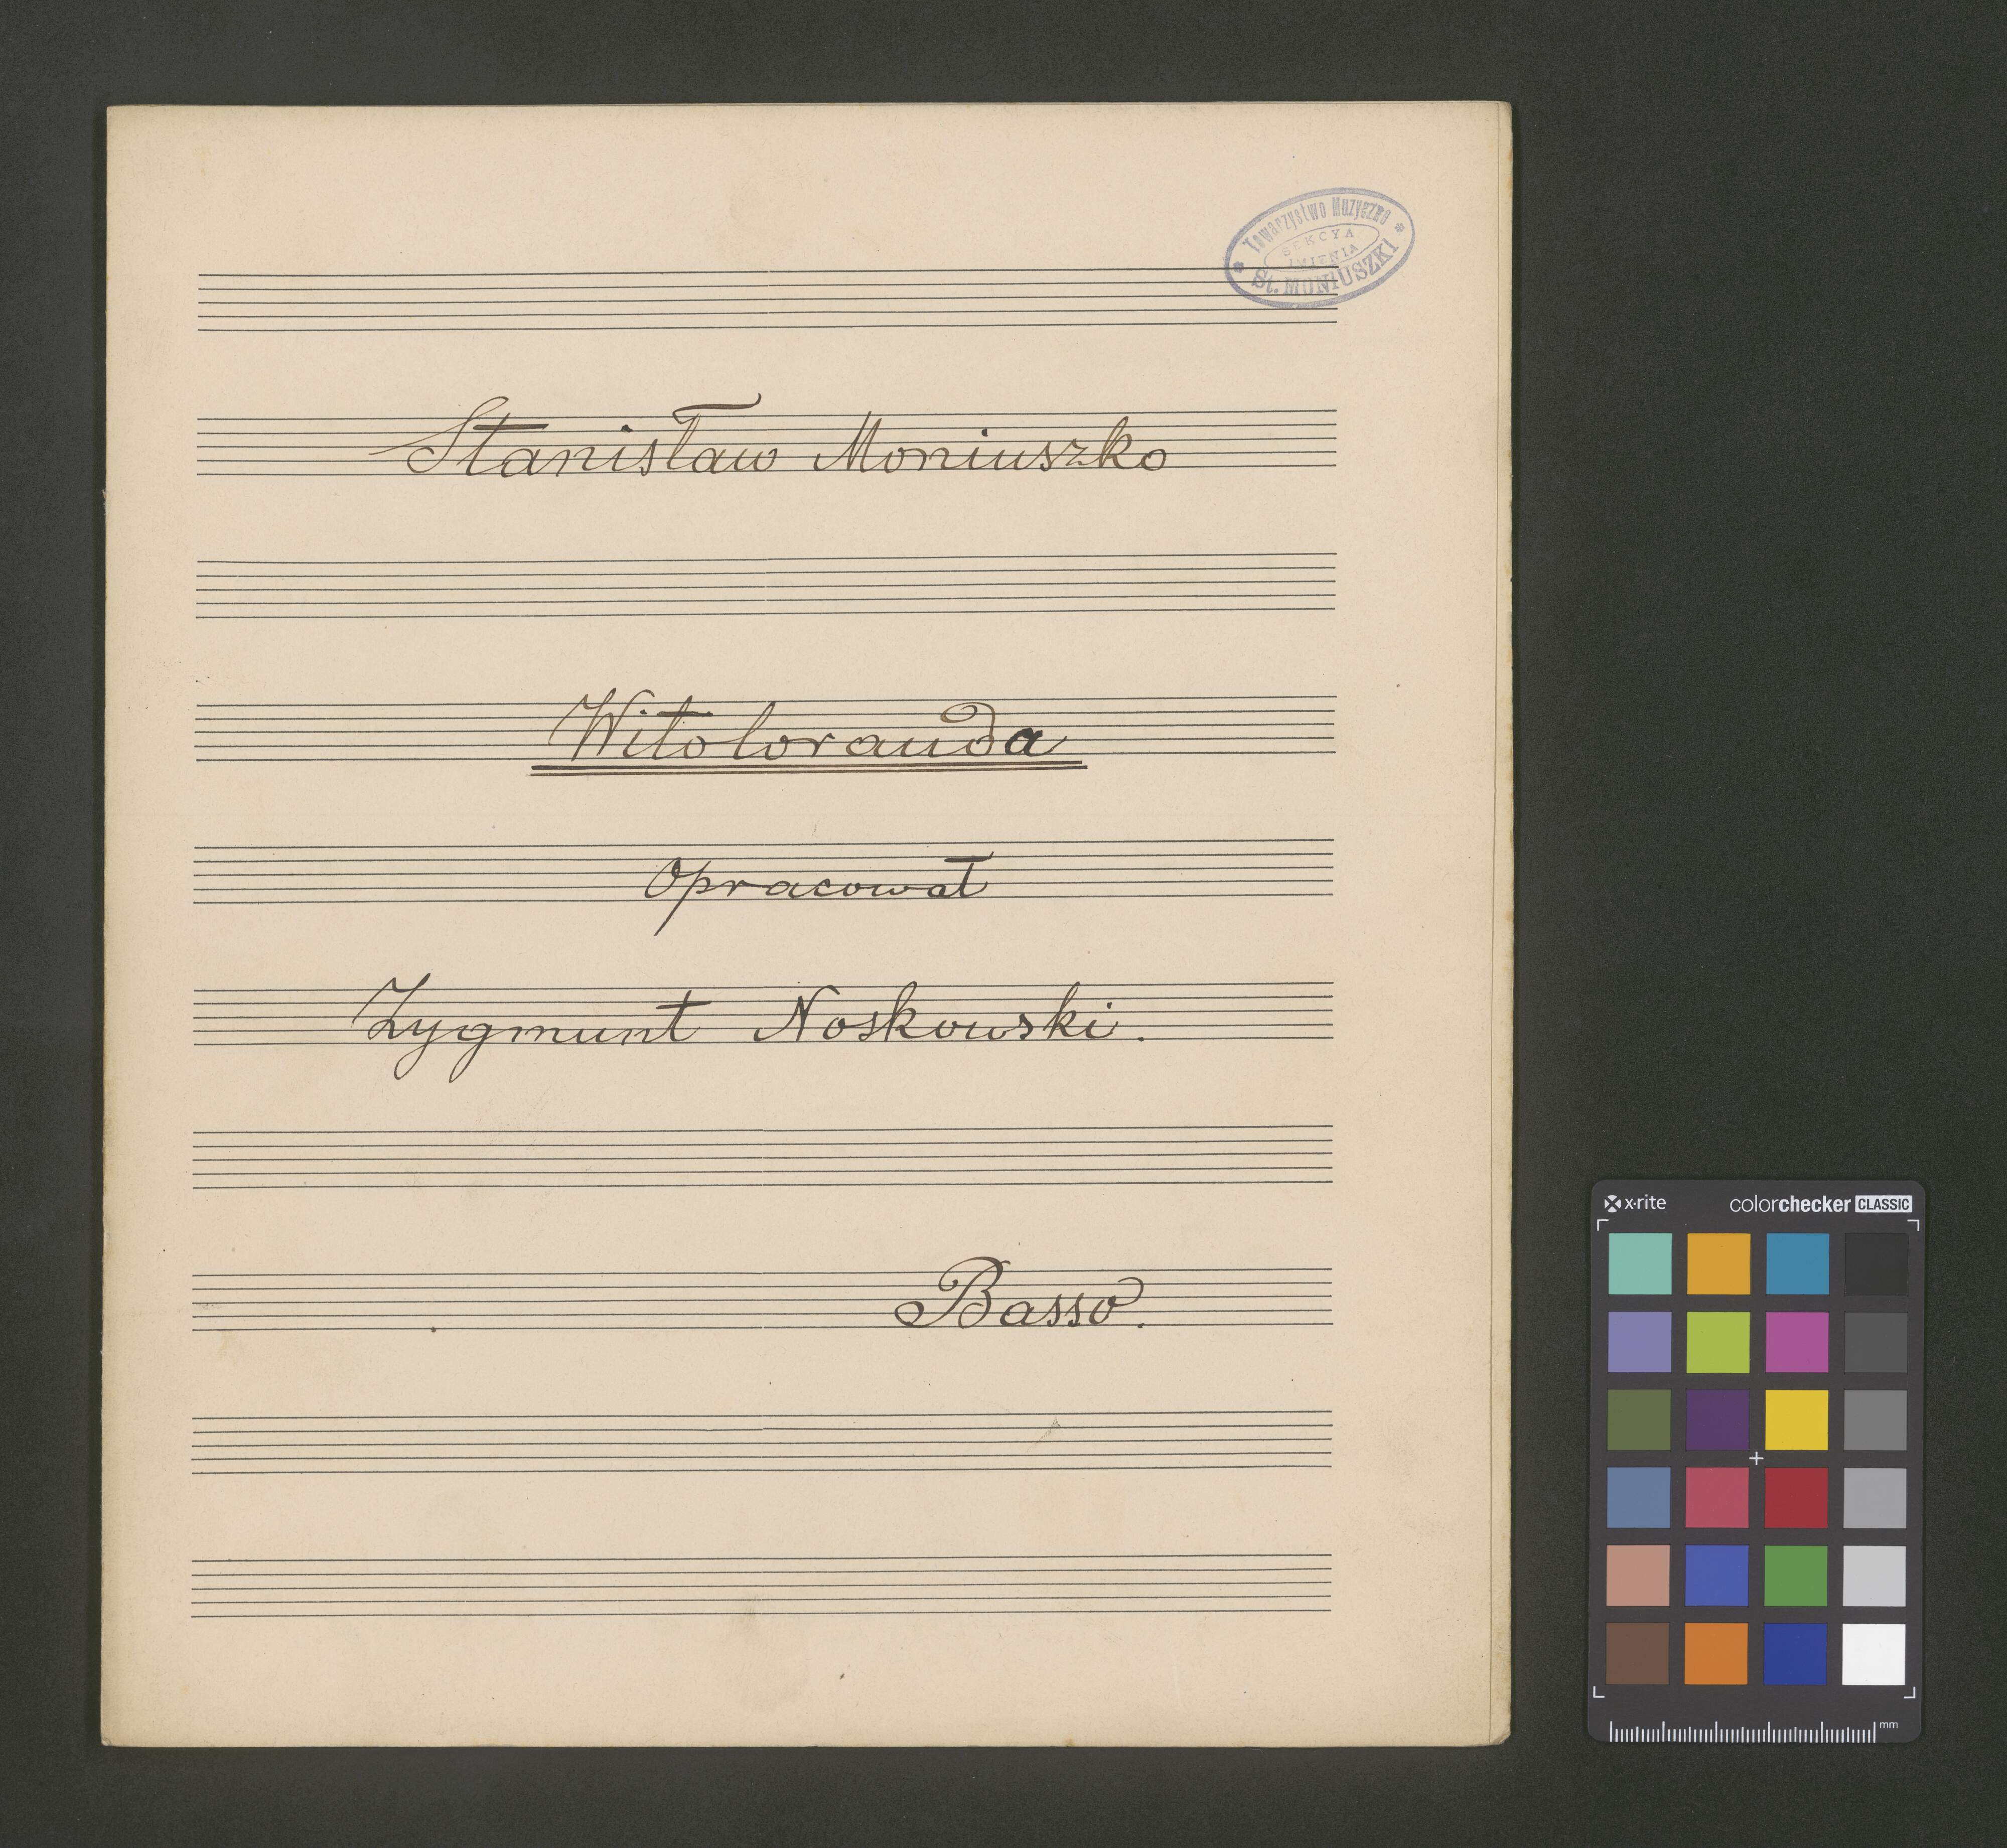 Towarzystwo Muzyczne
SEKCYA
IMIENIA
St. MONIUSZKI
Stanisław Moniuszko
Witoloranda
Opracował
Zygmunt Noskowski.
Basso.
x·rite colorchecker CLASSIC
mm